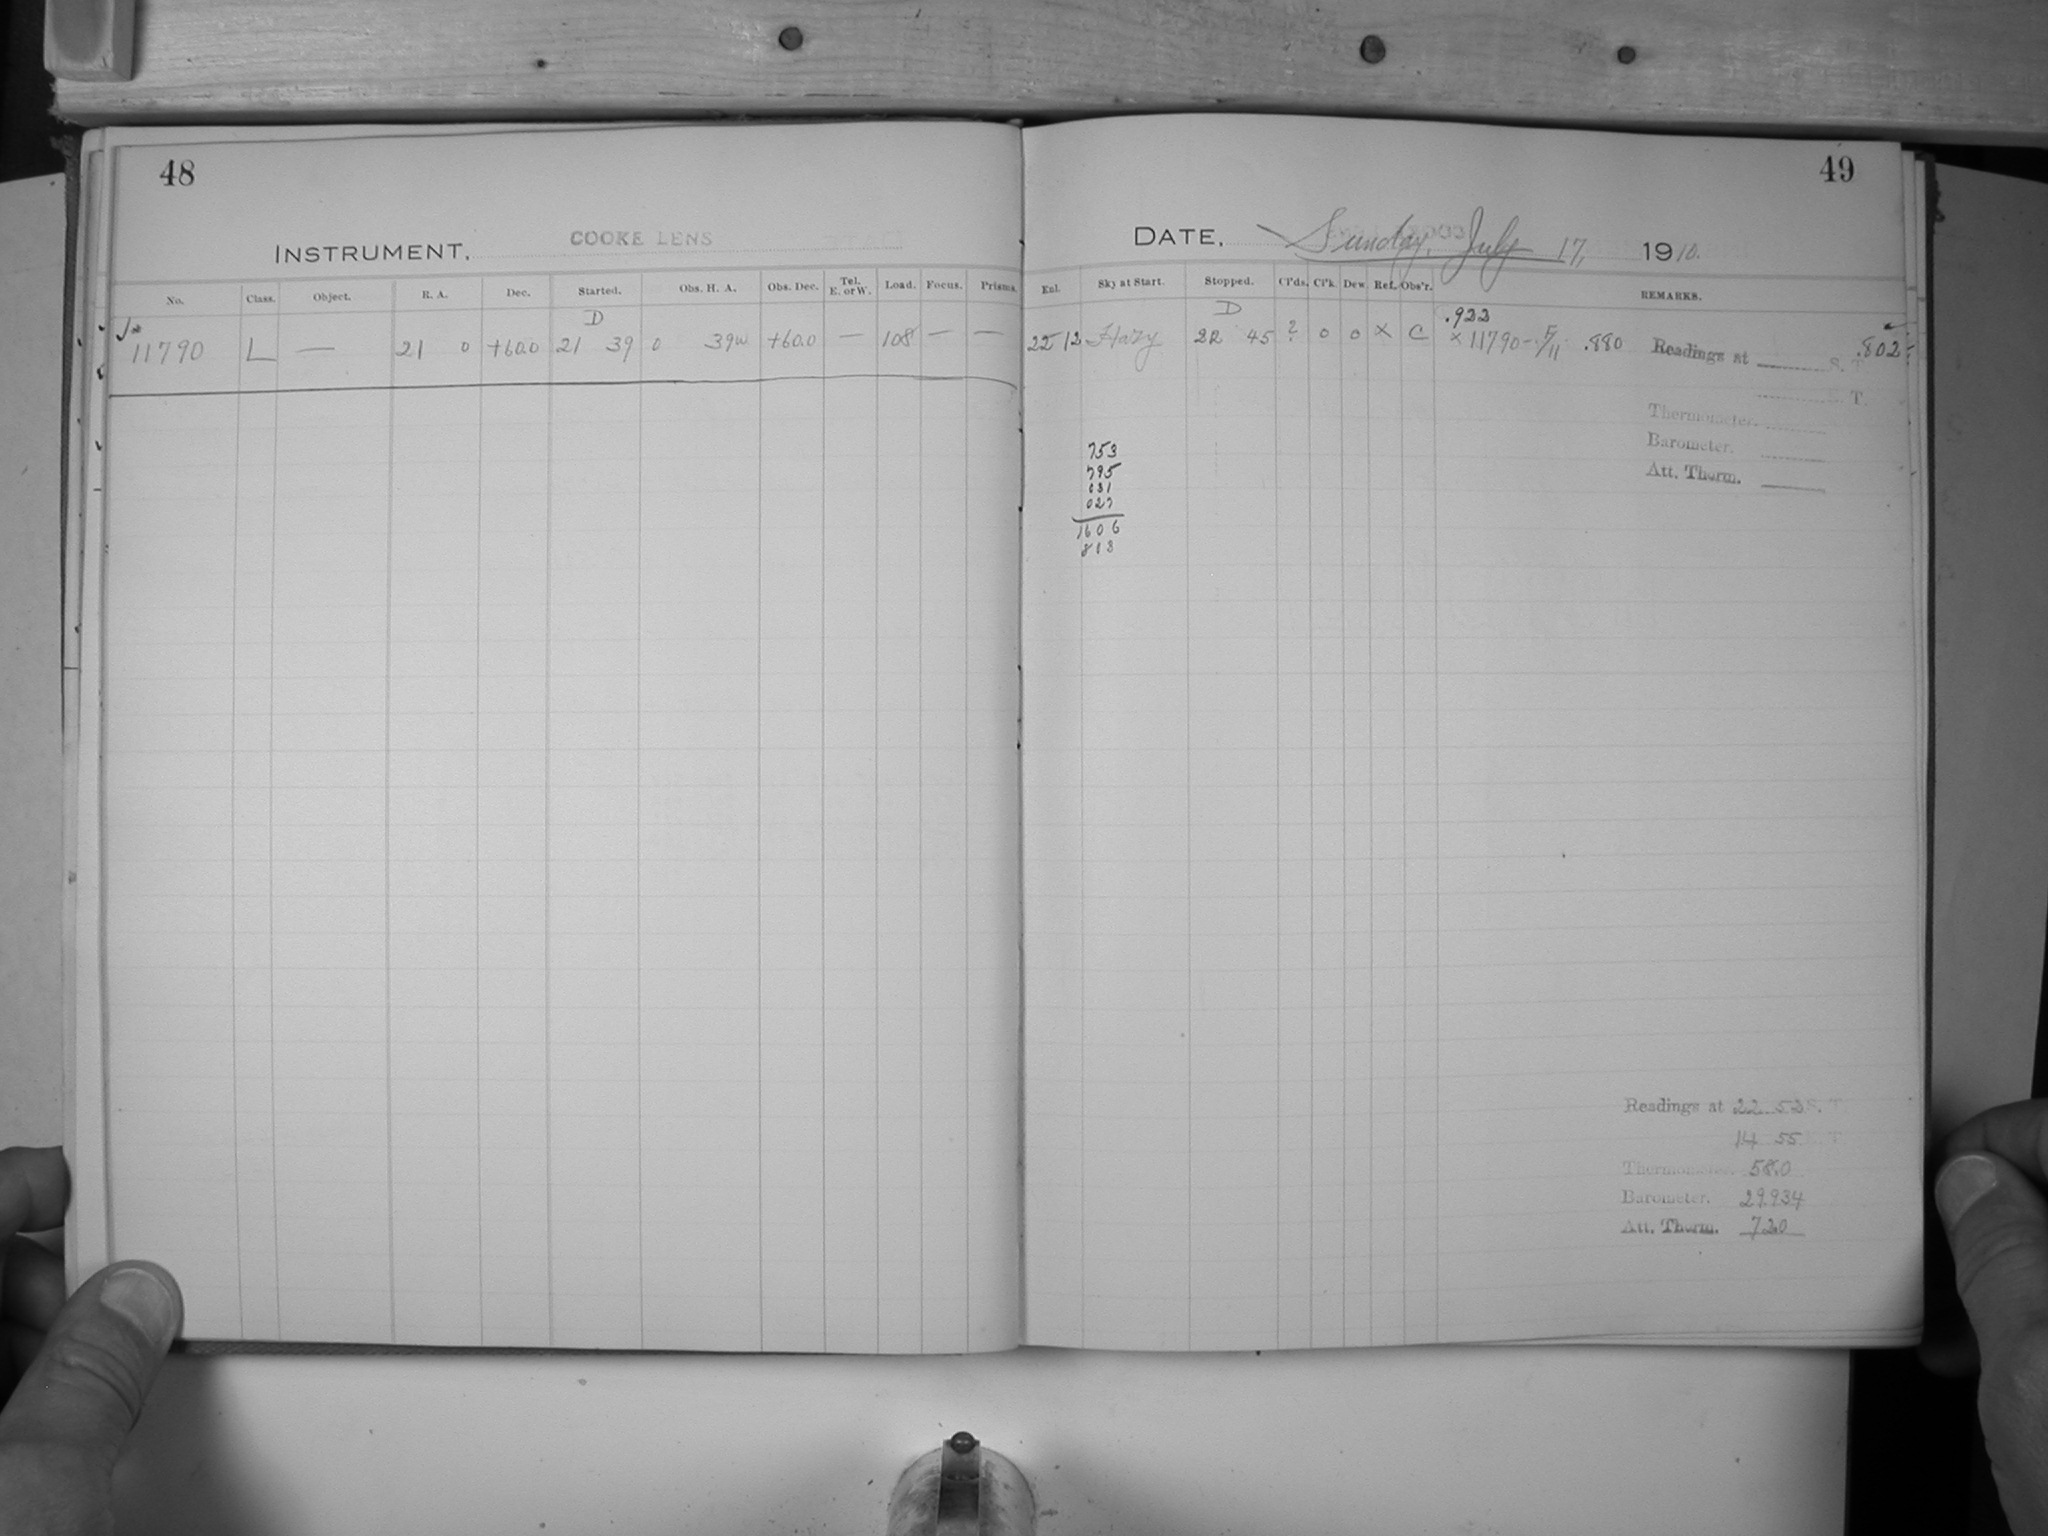 48
INSTRUMENT, COOKE LENS
No. Class. Object. R. A. Dec. Started. Obs. H. A. Obs. Dec. Tel. E. or W. Load. Focus. Prisms.
D
11790 L — 21 0 +60.0 21 39 0 39w +60.0 — 108 — —
49
DATE, Sunday, July 17, 1910.
Exl. Sky at Start. Stopped. Cl'ds. Cl'k. Dew. Ref. Obs'r. REMARKS.
D .922
22 12 Hazy 22 45 ? 0 0 X C × 11790 - F/11 .880 Readings at S. T .802
T.
Thermometer.
Barometer.
Att. Therm.
753
795
031
027
1606
803
Readings at 22 53 S. T
14 55 T
Thermometer. 58.0
Barometer. 29.934
Att. Therm. 72.0